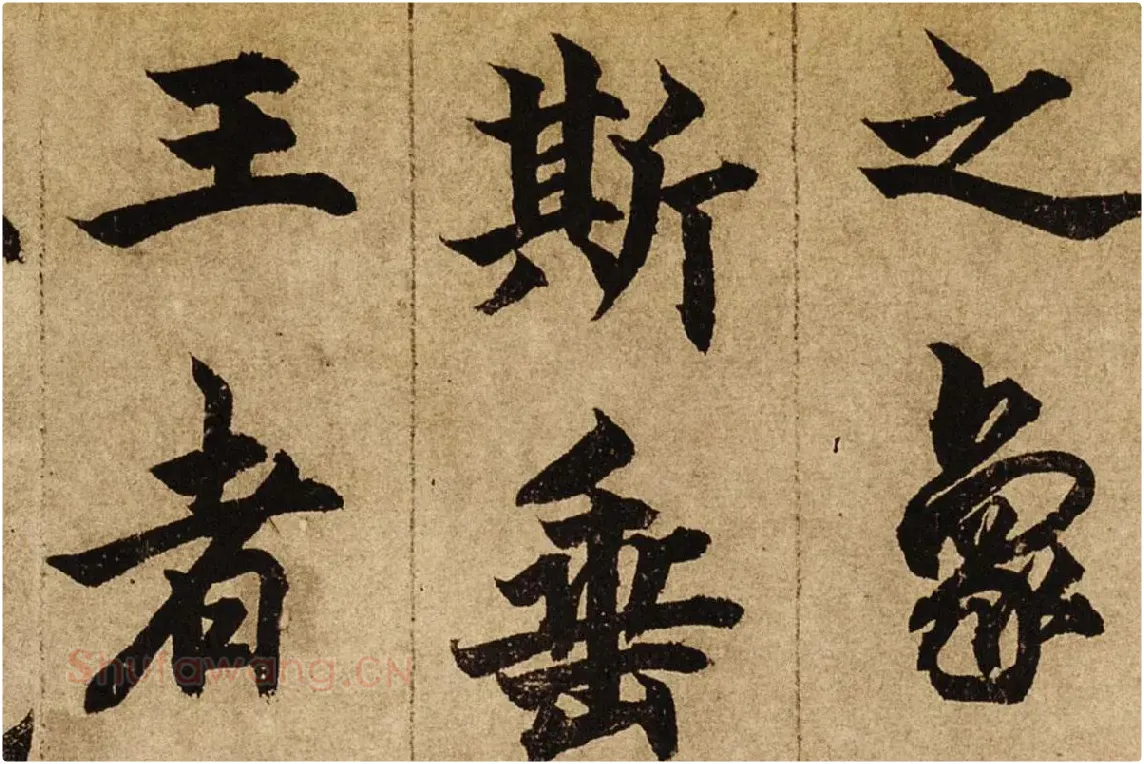 之象
斯垂
王者
Shufawang.CN